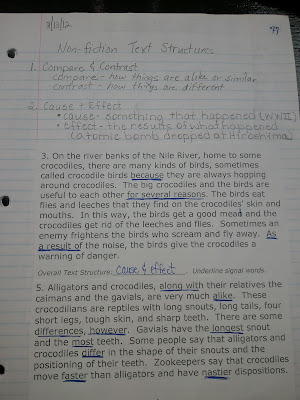 3/13/12
Non-fiction Text Structures
1. Compare & Contrast
compare - how things are alike or similar
contrast - how things are different
2. Cause & Effect
• cause - something that happened (WWII)
• effect - the results of what happened
(atomic bomb dropped at Hiroshima)
3. On the river banks of the Nile River, home to some
crocodiles, there are many kinds of birds, sometimes
called crocodile birds because they are always hopping
around crocodiles. The big crocodiles and the birds are
useful to each other for several reasons. The birds eat
flies and leeches that they find on the crocodiles' skin and
mouths. In this way, the birds get a good meal and the
crocodiles get rid of the leeches and flies. Sometimes an
enemy frightens the birds who scream and fly away. As
a result of the noise, the birds give the crocodiles a
warning of danger.
Overall Text Structure: Cause & effect. Underline signal words.
5. Alligators and crocodiles, along with their relatives the
caimans and the gavials, are very much alike. These
crocodilians are reptiles with long snouts, long tails, four
short legs, tough skin, and sharp teeth. There are some
differences, however. Gavials have the longest snout
and the most teeth. Some people say that alligators and
crocodiles differ in the shape of their snouts and the
positioning of their teeth. Zookeepers say that crocodiles
move faster than alligators and have nastier dispositions.